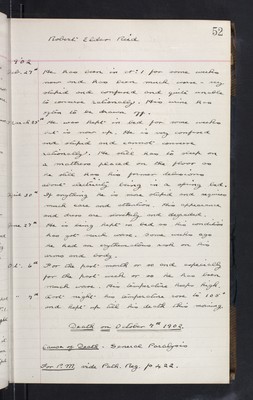 52
Robert Elder Reid
1902
He has been in N° 1 for some weeks
now and has been much worse - very
stupid and confused and quite unable
to converse rationally. His urine has
often to be drawn off.
He was kept in bed for some weeks
but is now up. He is very confused
and stupid and cannot converse
rationally. He still has to sleep on
a mattress placed on the floor as
he still has his former delusions
about electricity being in a spring bed.
April 30th If anything he is more stupid and requires
much care and attention. His appearance
and dress are slovenly and degraded.
27th He is being kept in bed as his condition
has got much worse. Some weeks ago
he had an erythematous rash on his
arms and body.
Oct. 6th For the past month or so and especially
for the past week or so he has been
much worse. His temperature keeps high.
- 7th Last night his temperature rose to 105°
and kept up till his death this morning.
Death on October 7th 1902.
Cause of Death - General Paralysis
For P.M. vide Path. Reg. p 422.